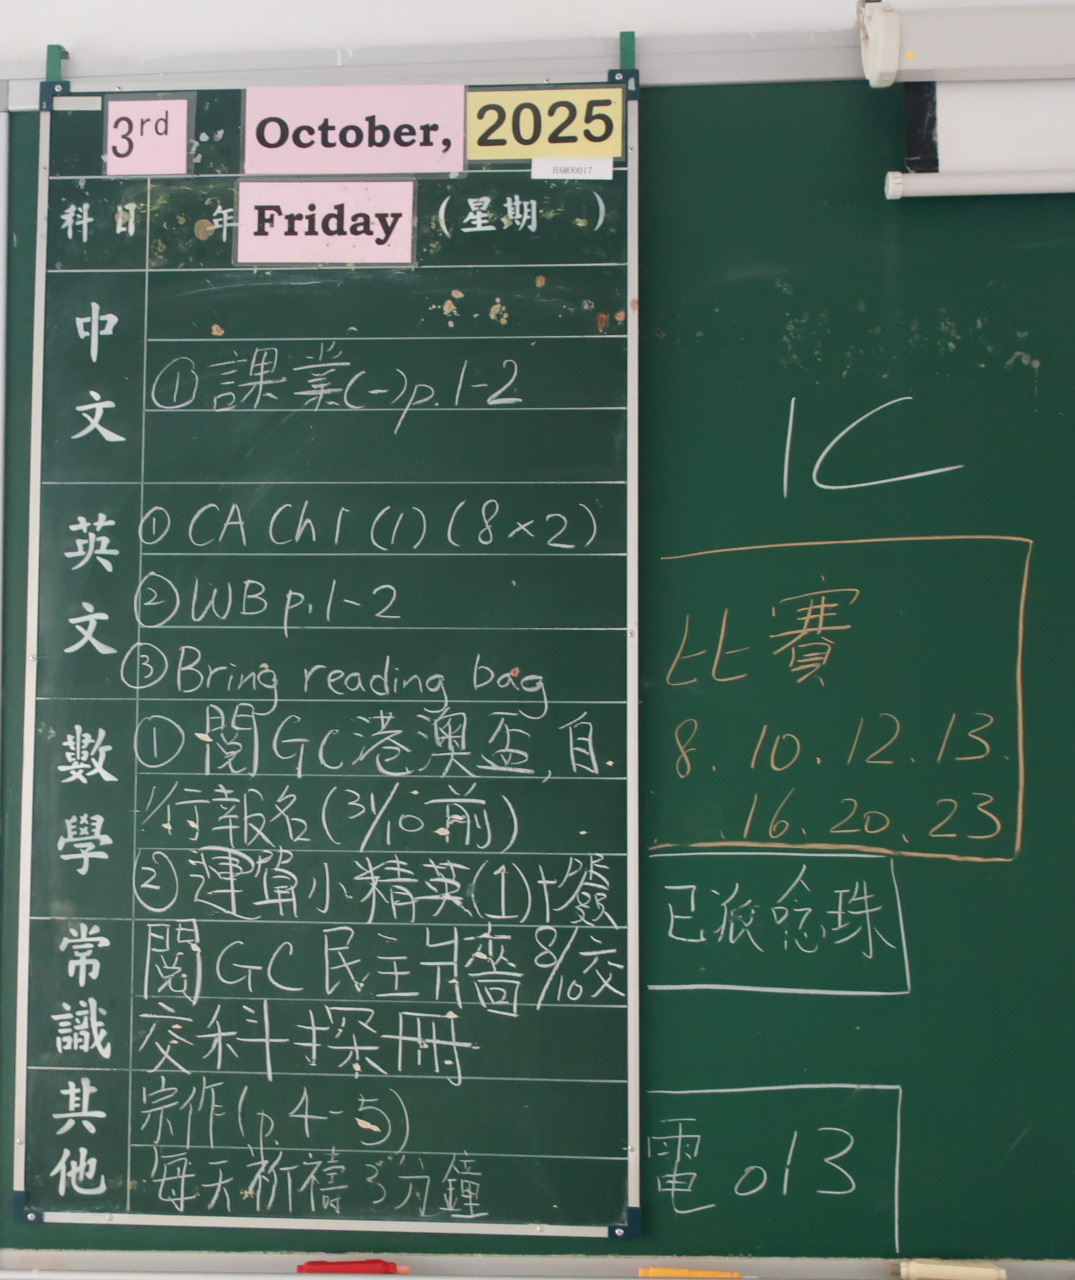 3rd 年 October, 2025
HAM00017
科目 年 Friday (星期 )
中文
①課業(一)p.1-2
英文
① CA Ch1 (1) (8×2)
② WB p.1-2
③ Bring reading bag
數學
① 閱GC港澳盃,自
行報名(31/10前)
② 運算小精英(1)十發
常識
閱GC民主牆 8/10交
交科探冊
其他
宗作(p.4-5)
每天祈禱3分鐘
1C
比賽
8.10.12.13.
16.20.23
已派唸珠
電 013